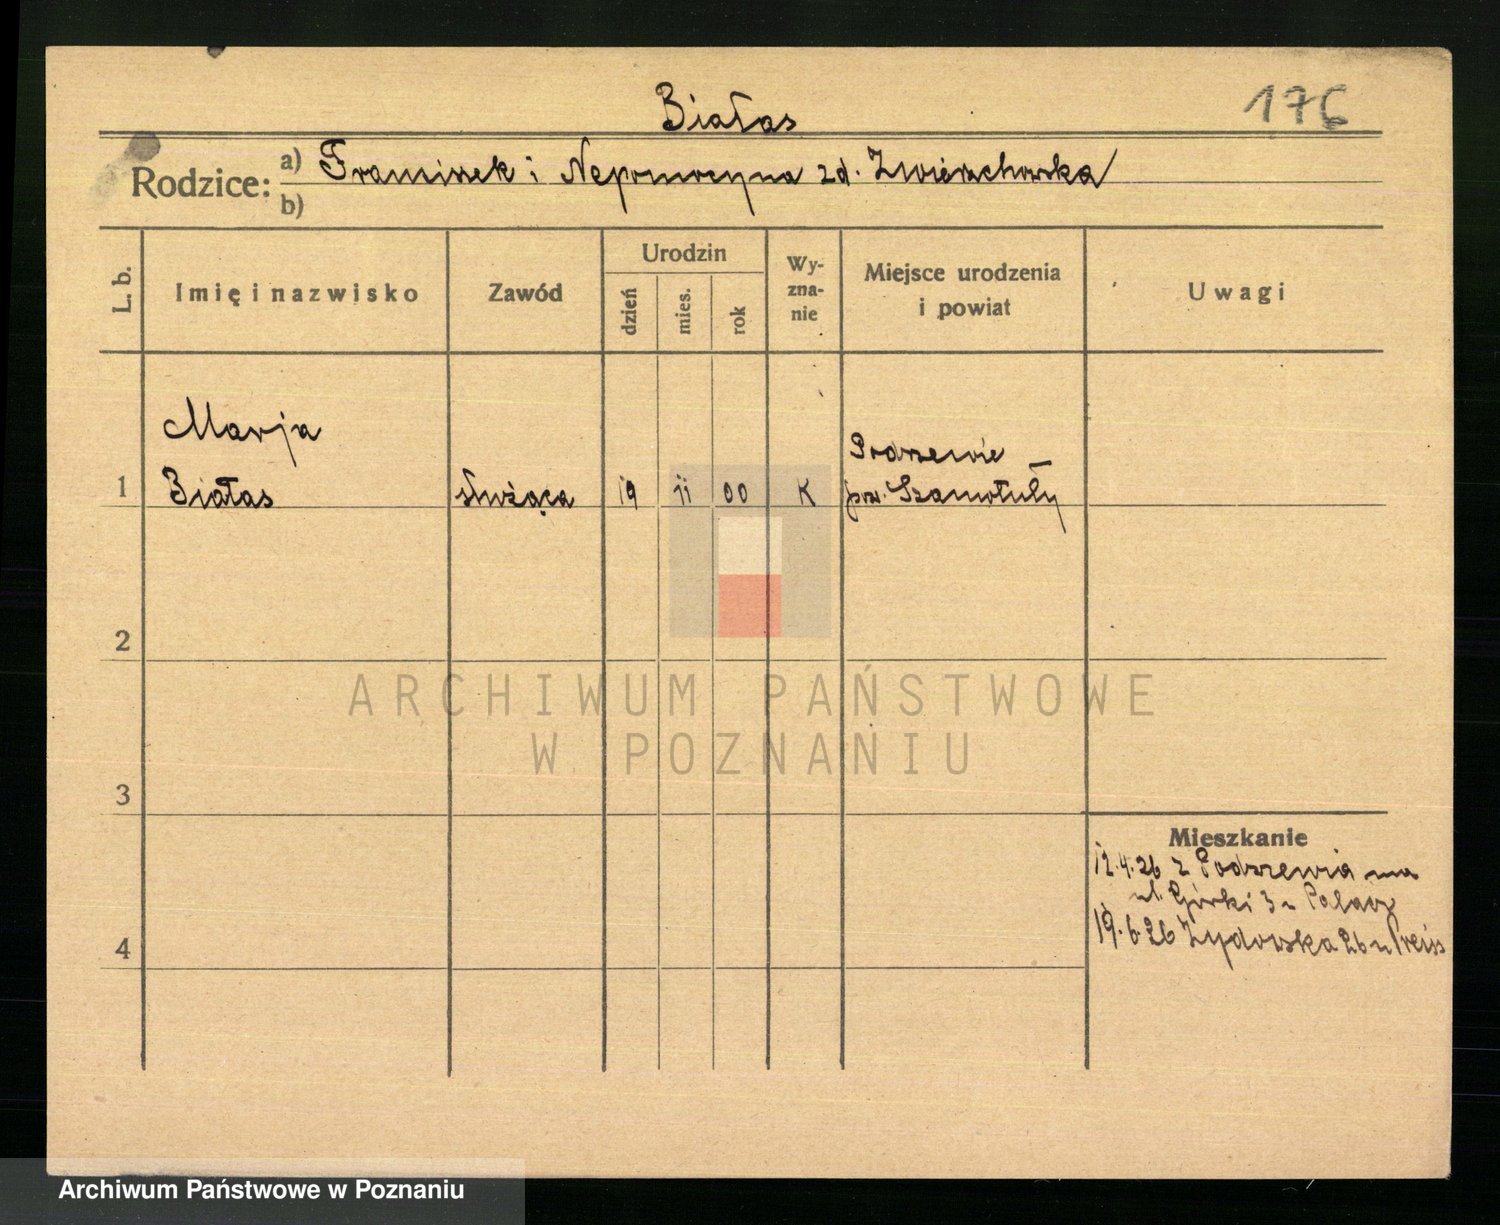 Białas
176
Rodzice:
a) Franciszek i Nepomocyna zd. Zwierzchowska
b)
L. b.
Imię i nazwisko
Zawód
Urodzin
dzień
mies.
rok
Wy-
zna-
nie
Miejsce urodzenia
i powiat
Uwagi
Marja
Podrzewie –
1 Białas służąca 19 11 00 K pow. Szamotuły
2
ARCHIWUM PAŃSTWOWE
W POZNANIU
3
Mieszkanie
12.4.26 z Podrzewia na
ul. Górki 3 u Palacz
19.6.26 Żydowska 26 u Preiss
4
Archiwum Państwowe w Poznaniu